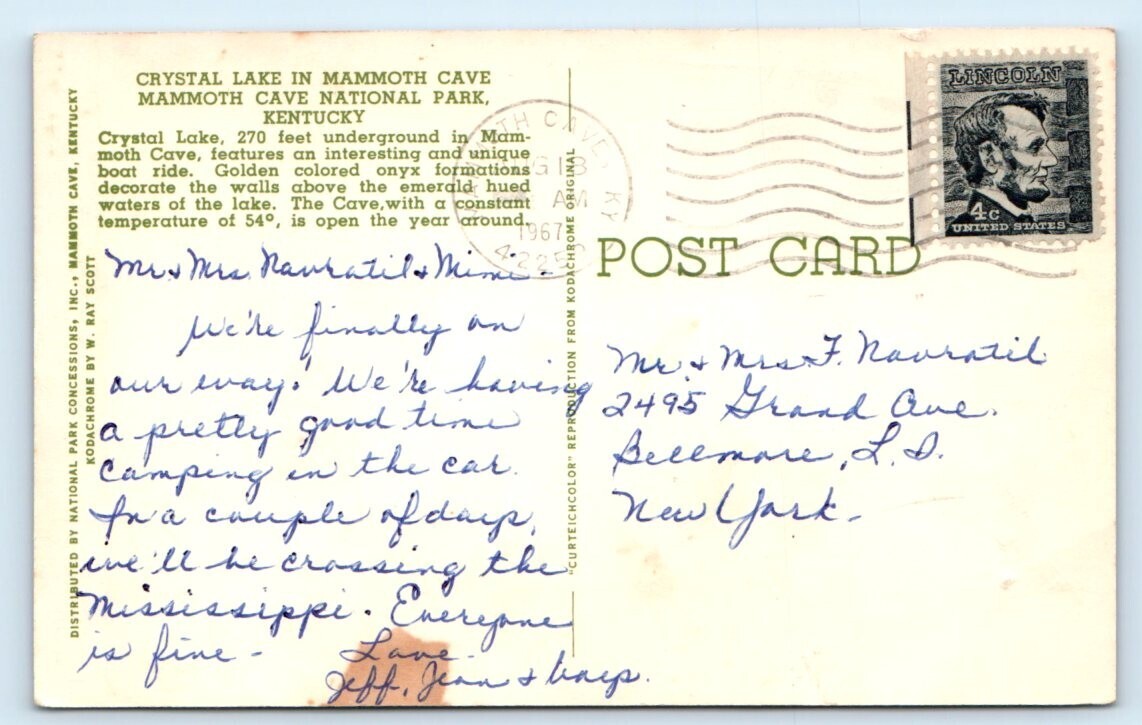 CRYSTAL LAKE IN MAMMOTH CAVE
MAMMOTH CAVE NATIONAL PARK,
KENTUCKY
Crystal Lake, 270 feet underground in Mam-
moth Cave, features an interesting and unique
boat ride. Golden colored onyx formations
decorate the walls above the emerald hued
waters of the lake. The Cave,with a constant
temperature of 54°, is open the year around.
DISTRIBUTED BY NATIONAL PARK CONCESSIONS, INC., MAMMOTH CAVE, KENTUCKY
KODACHROME BY W. RAY SCOTT
Mr + Mrs Navratil + Mimi -
We're finally on
our way. We're having
a pretty good time
camping in the car.
In a couple of days,
we'll be crossing the
Mississippi. Everyone
is fine -
Love.
Jeff, Jean + boys.
"CURTEICHCOLOR" REPRODUCTION FROM KODACHROME ORIGINAL
MOTH CAVE, KY
G 18
AM
1967
422
POST CARD
LINCOLN
4c
UNITED STATES
Mr + Mrs F. Navratil
2495 Grand Ave.
Bellmore, L.I.
New York.